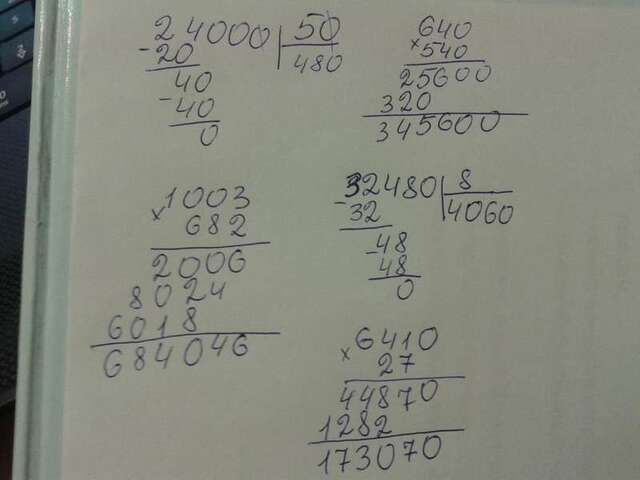 24000 50
-20 480
40
-40
0
640
×540
25600
320
345600
1003
×682
2006
8024
6018
684046
32480 8
-32 4060
-48
48
0
6410
×27
44870
1282
173070